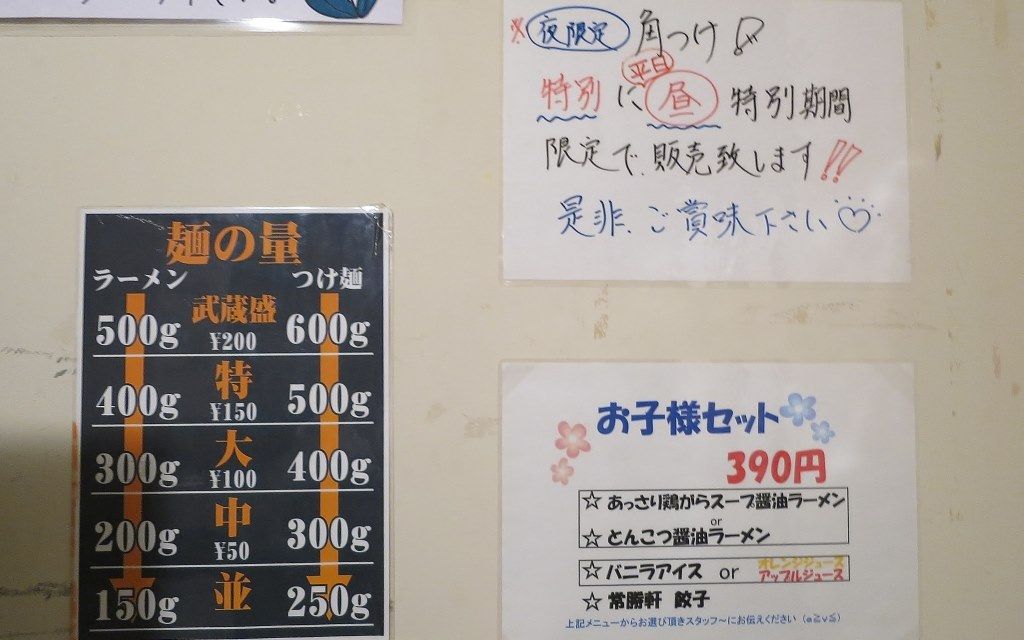 麺の量
ラーメン つけ麺
武蔵盛
500g ¥200 600g
特
400g ¥150 500g
大
300g ¥100 400g
中
200g ¥50 300g
並
150g 250g
※夜限定 角つけ
平日
特別に昼 特別期間
限定で販売致します!!
是非、ご賞味下さい♡
お子様セット
390円
☆ あっさり鶏がらスープ醤油ラーメン
or
☆ とんこつ醤油ラーメン
オレンジジュース
☆ バニラアイス or アップルジュース
☆ 常勝軒 餃子
上記メニューからお選び頂きスタッフ～にお伝えください (≧∨≦)